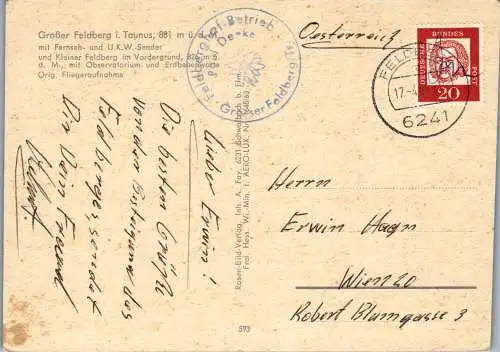 Großer Feldberg i. Taunus, 881 m ü. d. M.
mit Fernseh- und U.K.W.-Sender
und Kleiner Feldberg im Vordergrund, 826 m ü.
d. M., mit Observatorium und Erdbebenwarte
Orig. Fliegeraufnahme
Lieber Erwin!
Die besten Grüße
von der Besteigung des
Feldberges, sendet
Dir Dein Freund
Rosen-Bild-Verlag, Inh. A. Fay, 6231 Schwalbach b. Ffm.
Frei. Hess. Wi.-Min. F. AERO-LUX, Nr.
593
Feldberghof-Betrieb
Großer Feldberg/Ts.
Oesterreich
DEUTSCHE BUNDESPOST
20
6241
Herrn
Erwin Hagn
Wien 20
Robert Blumgasse 3